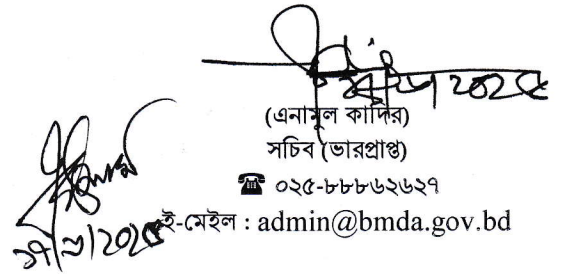 ২০২৫
(এনামুল কাদির)
সচিব (ভারপ্রাপ্ত)
☎ ০২৫-৮৮৮৬২৬২৭
ই-মেইল : admin@bmda.gov.bd